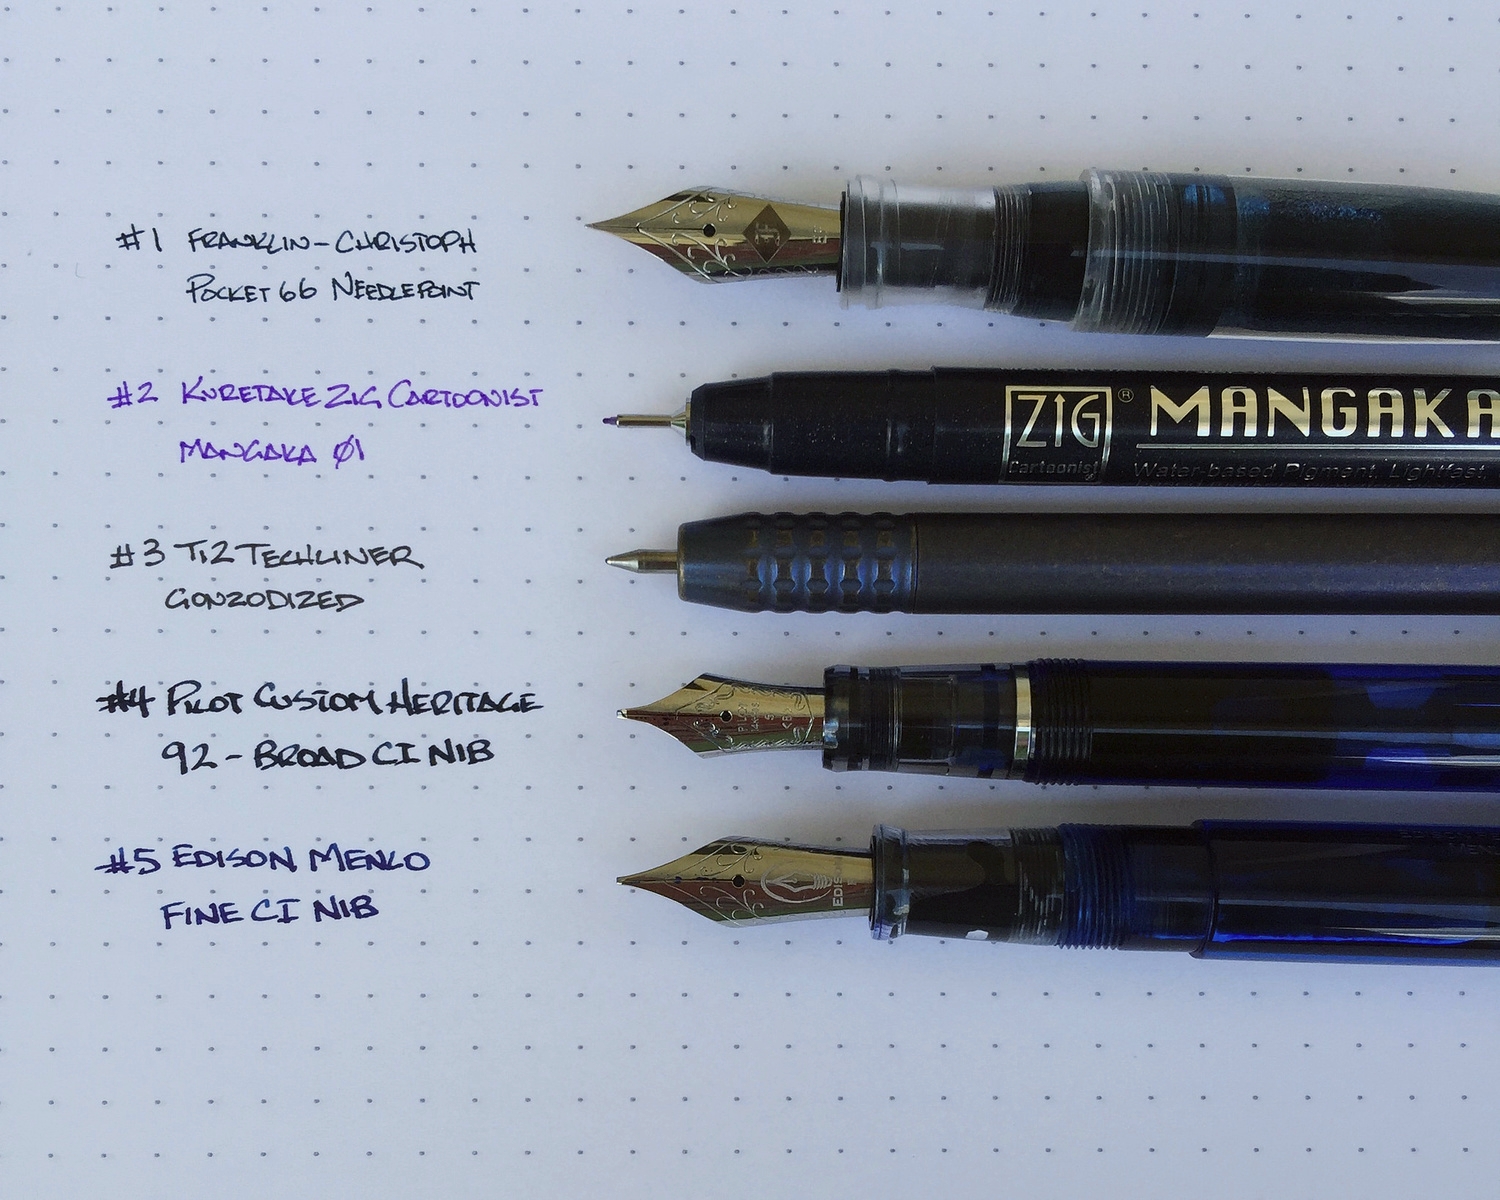 #1 FRANKLIN-CHRISTOPH
POCKET 66 NEEDLEPOINT
#2 KURETAKE ZIG CARTOONIST
MANGAKA 01
ZIG® MANGAKA
Cartoonist Water-based Pigment, Lightfast,
#3 Ti2 TECHLINER
GONZODIZED
#4 PILOT CUSTOM HERITAGE
92 - BROAD CI NIB
PILOT
#5 EDISON MENLO
FINE CI NIB
EDISON